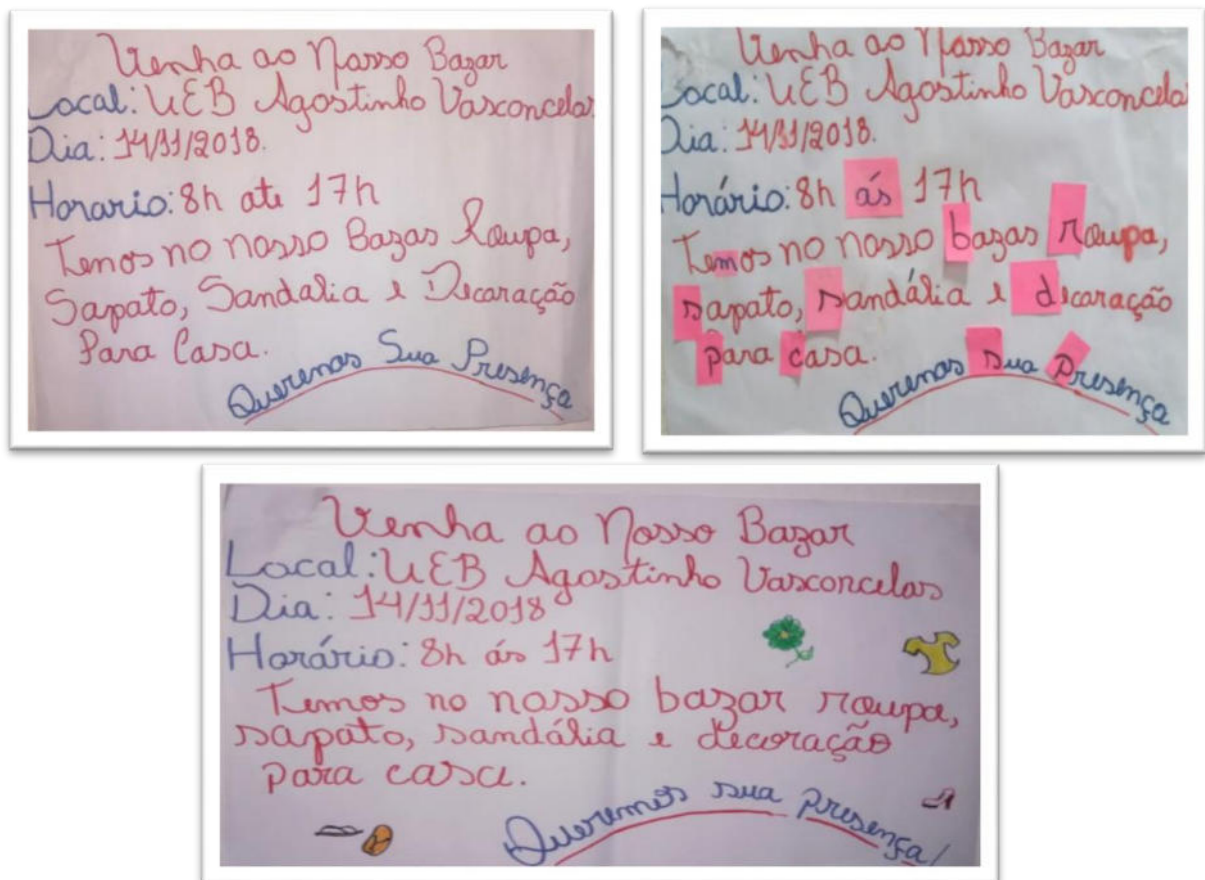 Venha ao Nosso Bazar
Local: UEB Agostinho Vasconcelos
Dia: 14/11/2018.
Horario: 8h ate 17h
Temos no nosso Bazas Roupa,
Sapato, Sandalia e Decoração
Para Casa.
Queremos Sua Presença
Venha ao Nosso Bazar
Local: UEB Agostinho Vasconcelo
Dia: 14/11/2018.
Horário: 8h ás 17h
Temos no nosso bazas roupa,
sapato, sandália e decoração
para casa.
Queremos sua presença
Venha ao Nosso Bazar
Local: UEB Agostinho Vasconcelos
Dia: 14/11/2018
Horário: 8h ás 17h
Temos no nosso bazar roupa,
sapato, sandália e decoração
para casa.
Queremos sua presença!